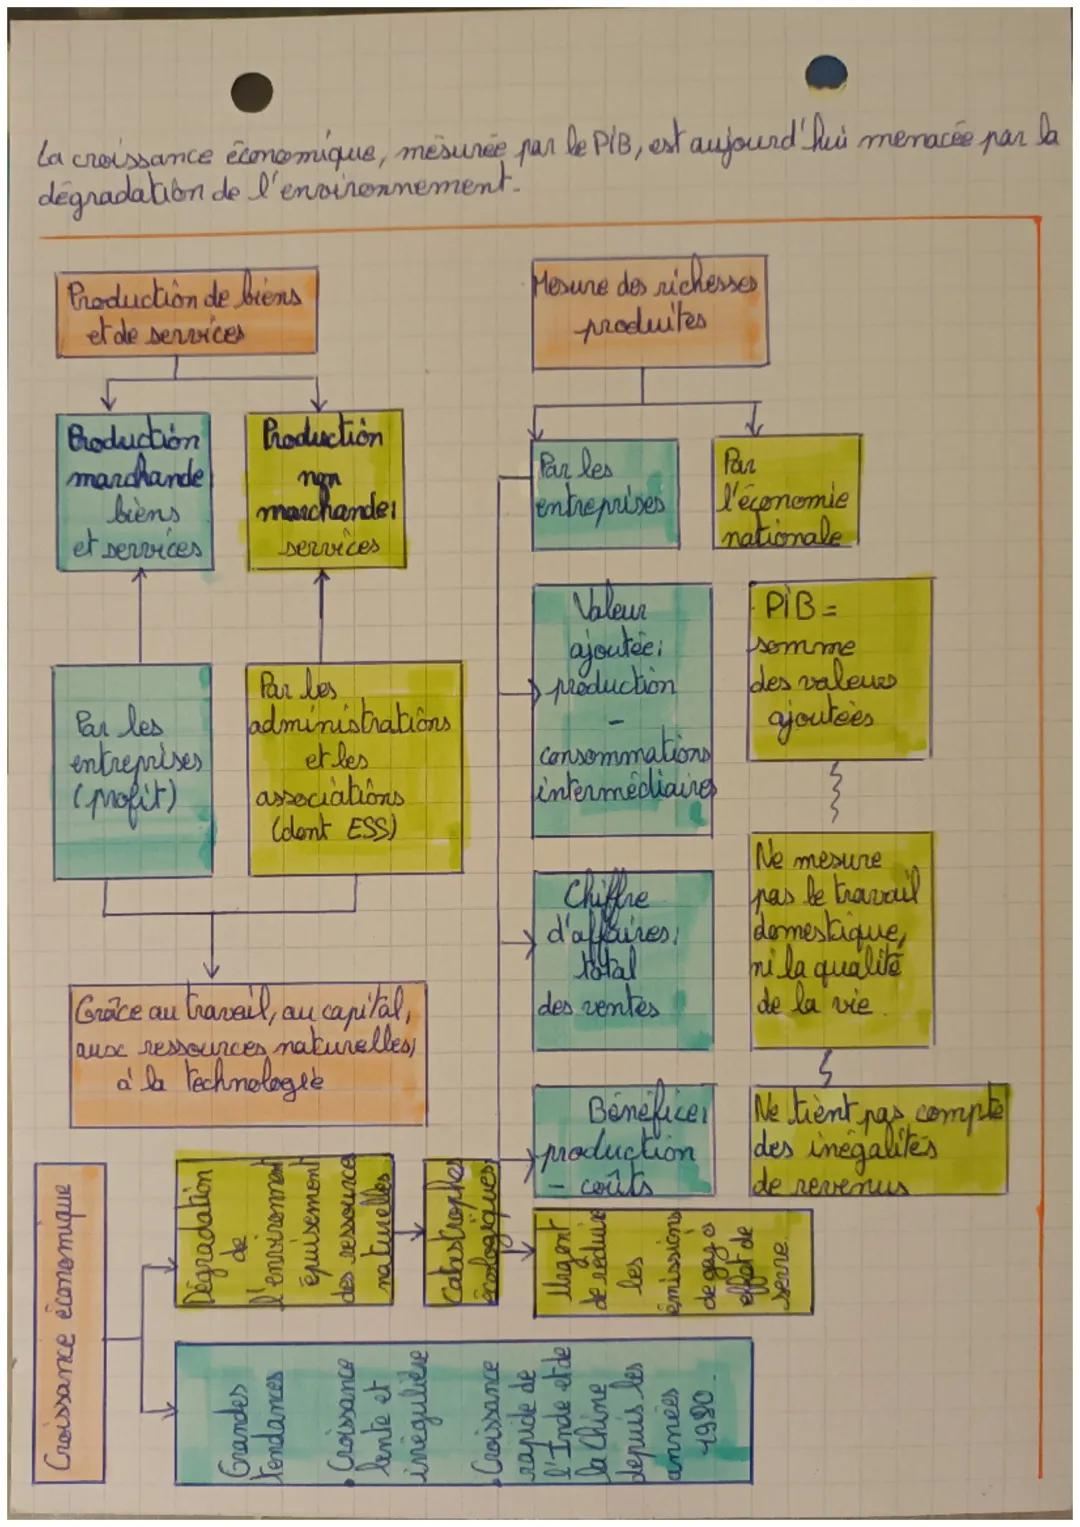 La croissance économique, mesurée par le PIB, est aujourd'hui menacée par la
dégradation de l'environnement.
Production de biens
et de services
Mesure des richesses
produites
Production
marchande
biens
et services
Production
non
marchande:
services
Par les
entreprises
Par
l'économie
nationale
Par les
entreprises
(profit)
Par les
administrations
et les
associations
(dont ESS)
Valeur
ajoutée:
production
-
consommations
intermédiaires
PIB =
somme
des valeurs
ajoutées
Chiffre
d'affaires:
total
des ventes
Ne mesure
pas le travail
domestique,
ni la qualité
de la vie.
Grâce au travail, au capital,
aux ressources naturelles,
à la technologie
Bénéfice:
production
- coûts
Ne tient pas compte
des inégalités
de revenus
Croissance économique
Dégradation
de
l'environnement
épuisement
des ressources
naturelles
Catastrophes
écologiques
Urgent
de réduire
les
émissions
de gaz à
effet de
serre.
Grandes
tendances
• Croissance
lente et
irrégulière
• Croissance
rapide de
l'Inde et de
la Chine
depuis les
années
1980.